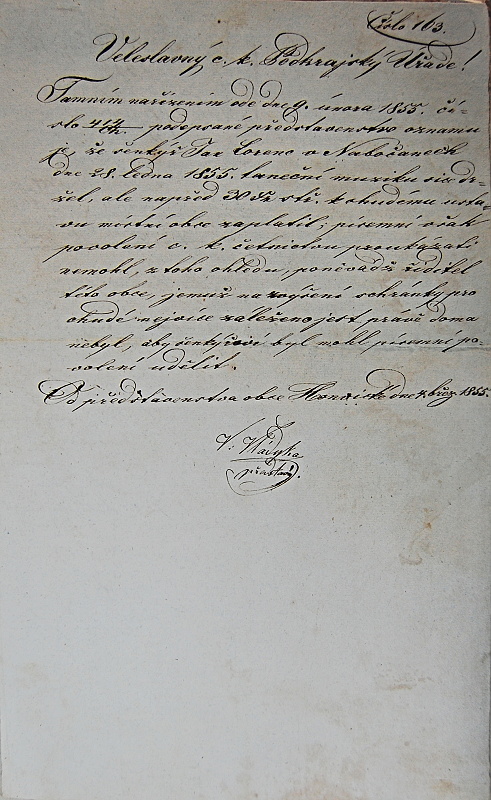 Číslo 103.
Veleslavný c. k. Podkrajský Úřade!
Tamním nařízením ode dne 9. února 1855. čí-
slo 414 podepsané představenstvo oznamu
je, že šenkýř Jan Lorenc v Nabočanech
dne 28. ledna 1855. taneční muziku sice dr-
žel, ale napřed 30 kr stř. k chudému usta-
vu místní obce zaplatil; písemní však
povolení c. k. četnictvu proukázati
nemohl, z toho ohledu, poněvádž ředitel
této obce, jemuž na zvýšení schránky pro
chudé nejvíce záleženo jest, právě doma
nebyl, aby šenkýřovi byl mohl písemní po-
volení udělit.
Od představenstva obce dne břez 1855.
V. Vladyka
představ.